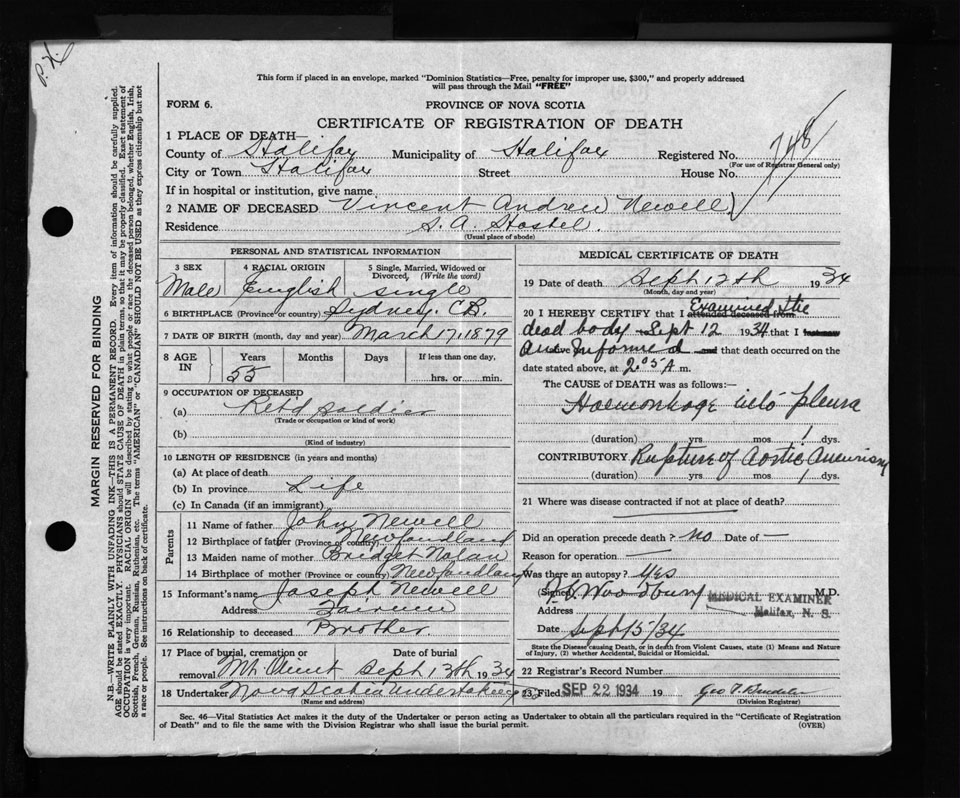 P. X.
This form if placed in an envelope, marked "Dominion Statistics—Free, penalty for improper use, $300," and properly addressed
will pass through the Mail "FREE"
FORM 6.
PROVINCE OF NOVA SCOTIA
CERTIFICATE OF REGISTRATION OF DEATH
1 PLACE OF DEATH—
County of Halifax Municipality of Halifax Registered No. 748
(For use of Registrar General only)
City or Town Halifax Street House No.
If in hospital or institution, give name
2 NAME OF DECEASED Vincent Andrew Newell
Residence S. A Hostel.
(Usual place of abode)
PERSONAL AND STATISTICAL INFORMATION
3 SEX 4 RACIAL ORIGIN 5 Single, Married, Widowed or Divorced, (Write the word)
Male English single
6 BIRTHPLACE (Province or country) Sydney. C.B.
7 DATE OF BIRTH (month, day and year) March 17. 1879
8 AGE IN Years Months Days If less than one day,
55 hrs. or min.
9 OCCUPATION OF DECEASED
(a) Ret'd soldier
(Trade or occupation or kind of work)
(b)
(Kind of industry)
10 LENGTH OF RESIDENCE (in years and months)
(a) At place of death
(b) In province Life
(c) In Canada (if an immigrant)
Parents
11 Name of father John Newell
12 Birthplace of father (Province or country) Newfoundland
13 Maiden name of mother Bridget Nolan
14 Birthplace of mother (Province or country) Newfoundland
15 Informant's name Joseph Newell
Address Fairview
16 Relationship to deceased Brother.
17 Place of burial, cremation or removal Date of burial
Mt Olivet Sept 13th 1934
18 Undertaker Nova Scotia Undertaking
(Name and address)
MEDICAL CERTIFICATE OF DEATH
19 Date of death Sept 12th 1934
(Month, day and year)
20 I HEREBY CERTIFY that I attended deceased from Examined the
dead body Sept 12 1934 that I
am Informed and that death occurred on the
date stated above, at 2.05 A m.
The CAUSE OF DEATH was as follows:—
Haemorrhage into pleura
(duration) yrs mos 1 dys.
CONTRIBUTORY Rupture of Aortic Aneurism
(duration) yrs mos dys.
21 Where was disease contracted if not at place of death?
Did an operation precede death? no Date of —
Reason for operation —
Was there an autopsy? Yes
(Signed) Woodbury M.D.
MEDICAL EXAMINER
Halifax, N. S.
Address
Date Sept 15/34
State the Disease causing Death, or in Death from Violent Causes, state (1) Means and Nature
of Injury, (2) whether Accidental, Suicidal or Homicidal.
22 Registrar's Record Number
23 Filed SEP 22 1934 19
(Division Registrar)
Sec. 46—Vital Statistics Act makes it the duty of the Undertaker or person acting as Undertaker to obtain all the particulars required in the "Certificate of Registration
of Death" and to file the same with the Division Registrar who shall issue the burial permit.
(OVER)
MARGIN RESERVED FOR BINDING
N.B.—WRITE PLAINLY WITH UNFADING INK—THIS IS A PERMANENT RECORD. Every item of information should be carefully supplied.
AGE should be stated EXACTLY. PHYSICIANS should STATE CAUSE OF DEATH in plain terms, so that it may be properly classified. Exact statement of
OCCUPATION is very important. RACIAL ORIGIN will be described by stating to what people or race the deceased person belonged, whether English, Irish,
Scottish, French, German, Russian, Ruthenian, etc. The terms "AMERICAN" or "CANADIAN" SHOULD NOT BE USED as they express citizenship but not
a race or people. See instructions on back of certificate.